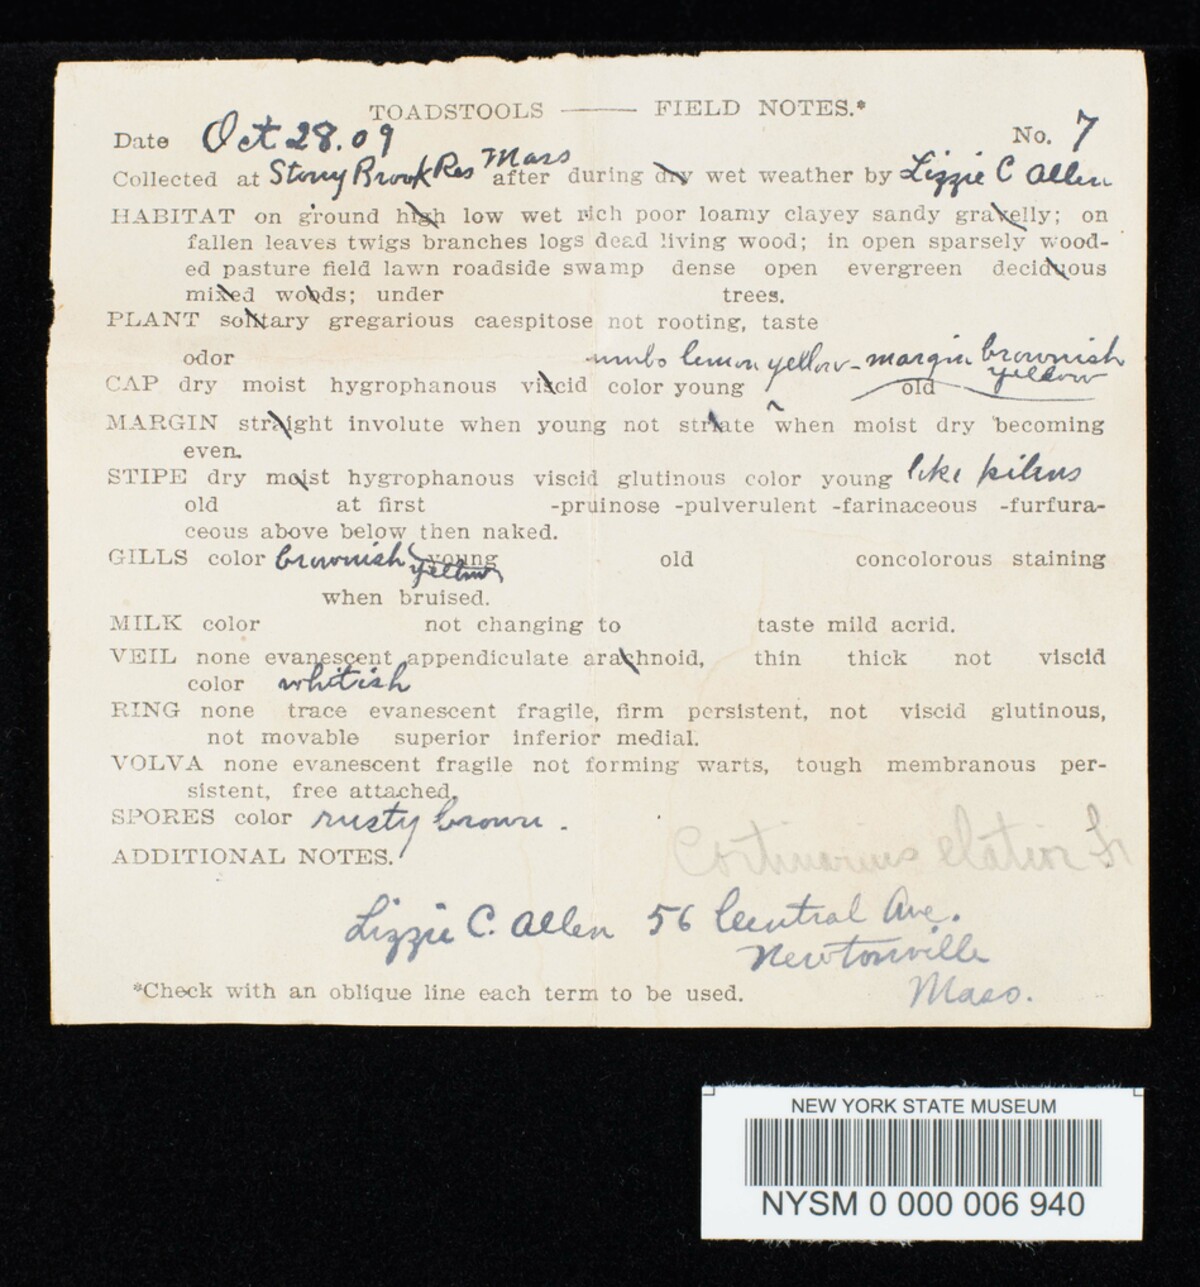 TOADSTOOLS —— FIELD NOTES.*
Date Oct 28.09 No. 7
Collected at Stony Brook Res Mass after during dry wet weather by Lizzie C Allen
HABITAT on ground high low wet rich poor loamy clayey sandy gravelly; on
fallen leaves twigs branches logs dead living wood; in open sparsely wood-
ed pasture field lawn roadside swamp dense open evergreen deciduous
mixed woods; under trees.
PLANT solitary gregarious caespitose not rooting, taste
odor umbo lemon yellow - margin brownish
yellow
CAP dry moist hygrophanous viscid color young old
MARGIN straight involute when young not striate when moist dry becoming
even.
STIPE dry moist hygrophanous viscid glutinous color young like pileus
old at first -pruinose -pulverulent -farinaceous -furfura-
ceous above below then naked.
GILLS color brownish young old concolorous staining
yellow
when bruised.
MILK color not changing to taste mild acrid.
VEIL none evanescent appendiculate arachnoid, thin thick not viscid
color whitish
RING none trace evanescent fragile, firm persistent, not viscid glutinous,
not movable superior inferior medial.
VOLVA none evanescent fragile not forming warts, tough membranous per-
sistent, free attached.
SPORES color rusty brown.
Cortinarius elatior Fr
ADDITIONAL NOTES.
Lizzie C. Allen 56 Central Ave.
Newtonville
Mass.
*Check with an oblique line each term to be used.
NEW YORK STATE MUSEUM
NYSM 0 000 006 940